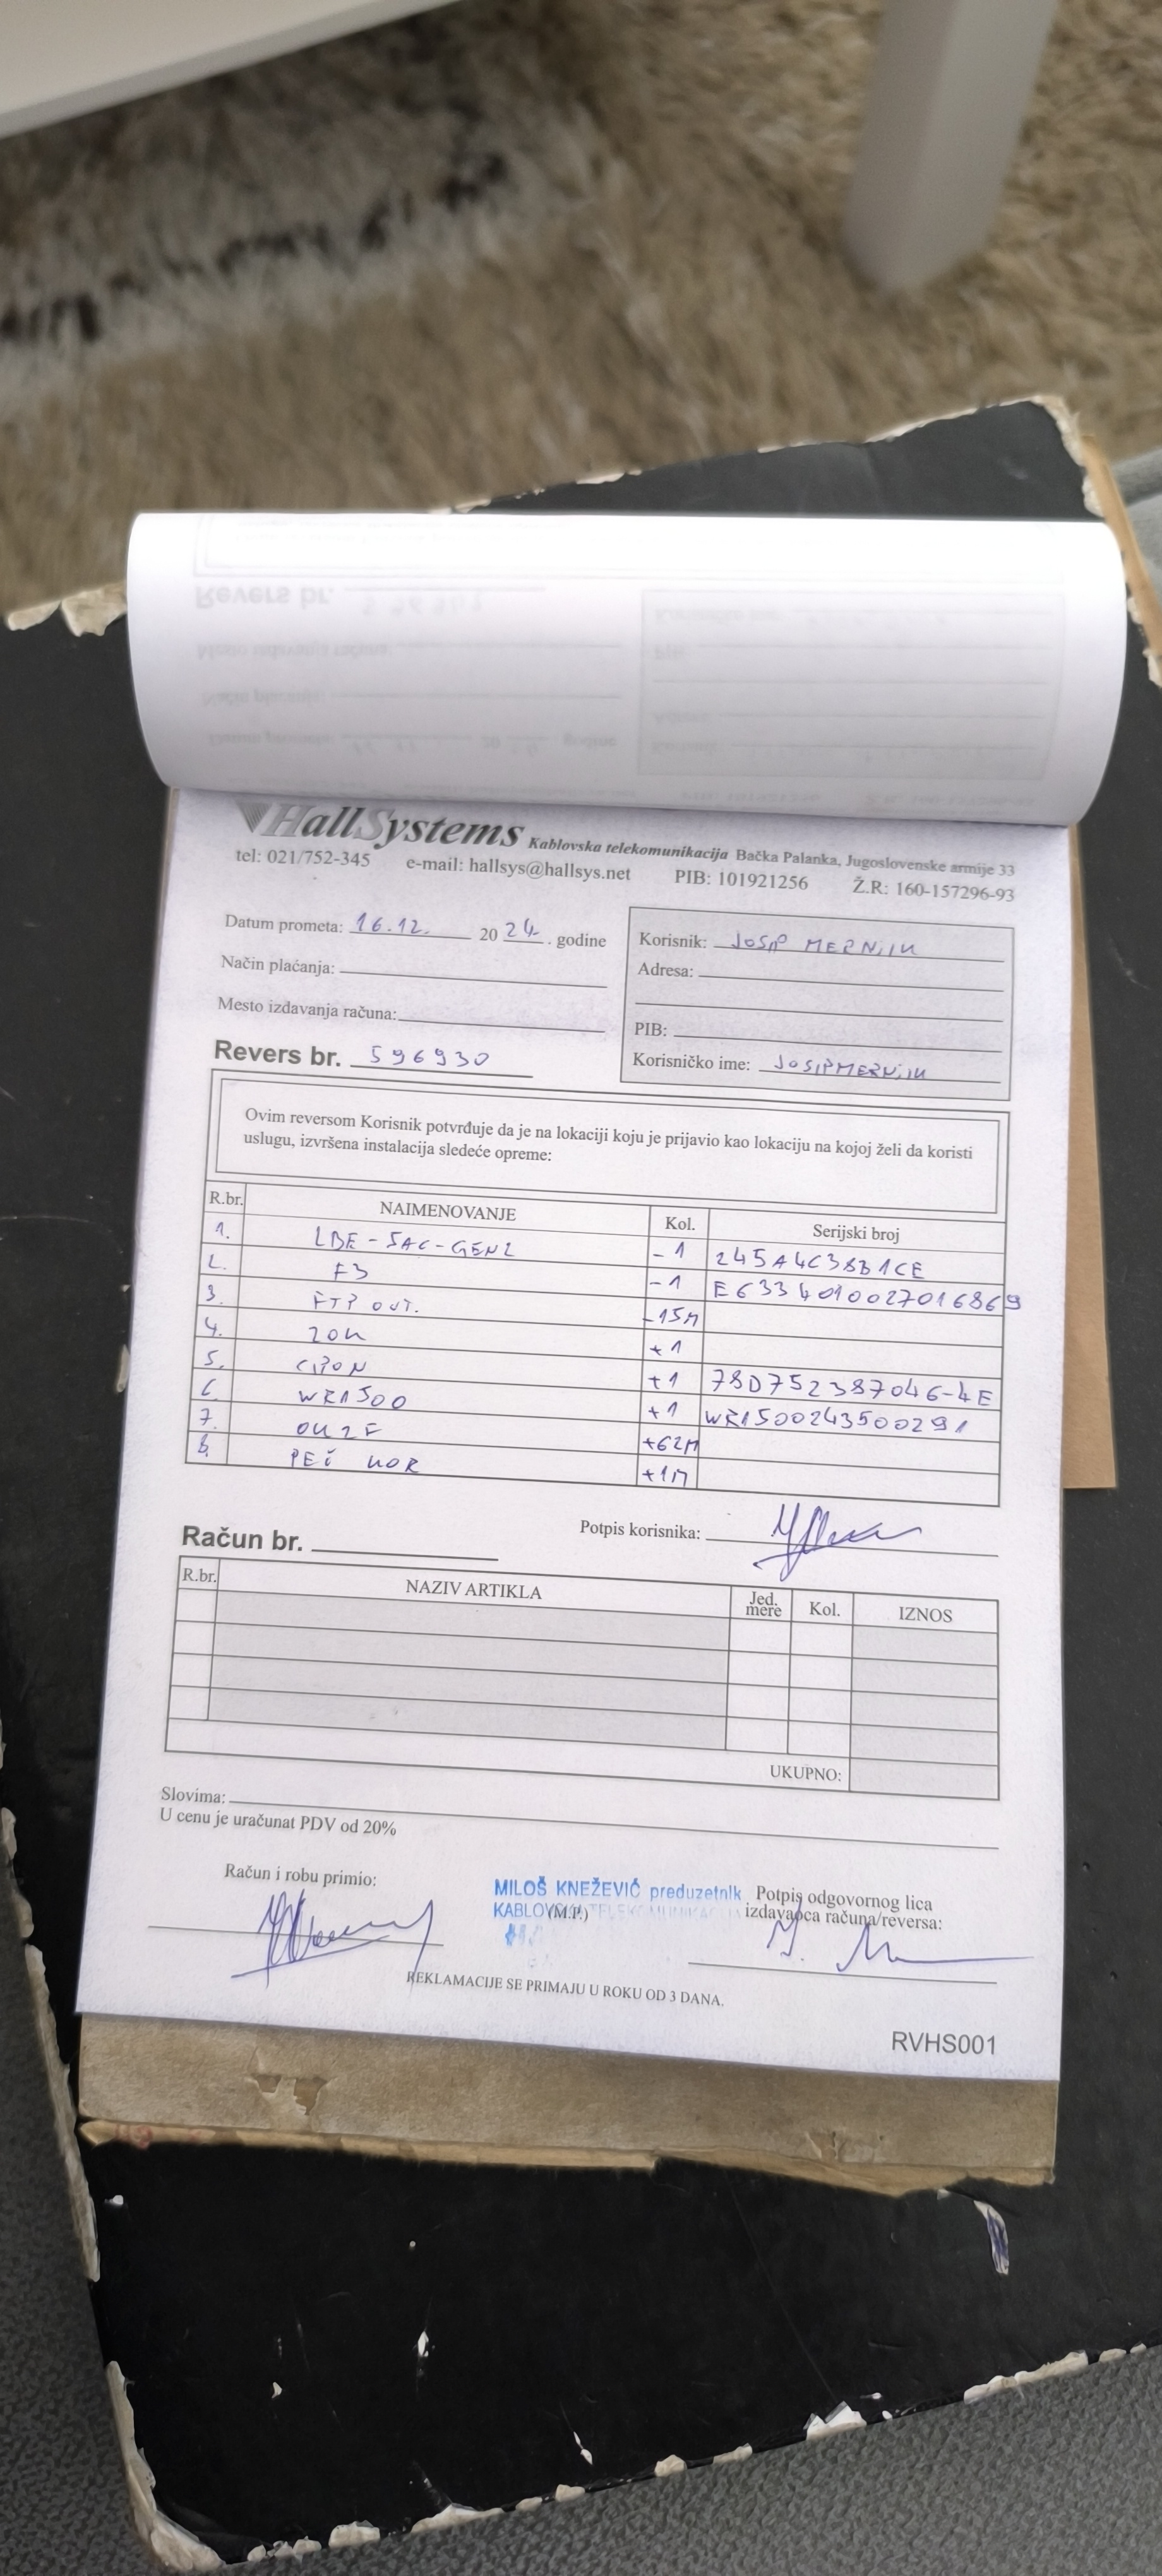 HallSystems Kablovska telekomunikacija Bačka Palanka, Jugoslovenske armije 33
tel: 021/752-345 e-mail: hallsys@hallsys.net PIB: 101921256 Ž.R: 160-157296-93
Datum prometa: 16.12. 20 24. godine
Način plaćanja:
Mesto izdavanja računa:
Korisnik: JOSIP MERNJIK
Adresa:
PIB:
Korisničko ime: JOSIPMERNJIK
Revers br. 596930
Ovim reversom Korisnik potvrđuje da je na lokaciji koju je prijavio kao lokaciju na kojoj želi da koristi
uslugu, izvršena instalacija sledeće opreme:
R.br. NAIMENOVANJE Kol. Serijski broj
1. LBE-5AC-GEN2 -1 245A4C38B1CE
2. F3 -1 E6334010027016869
3. FTP OUT. -15M
4. ZOK +1
5. GPON +1 78D752387046-4E
6. WR1500 +1 WR1500243500291
7. OK2F +62M
8. PEČ KOR +1M
Potpis korisnika:
Račun br.
R.br. NAZIV ARTIKLA Jed. mere Kol. IZNOS
UKUPNO:
Slovima:
U cenu je uračunat PDV od 20%
Račun i robu primio:
MILOŠ KNEŽEVIĆ preduzetnik
KABLOVSKA TELEKOMUNIKACIJA
(M.P.)
Potpis odgovornog lica
izdavaoca računa/reversa:
REKLAMACIJE SE PRIMAJU U ROKU OD 3 DANA.
RVHS001